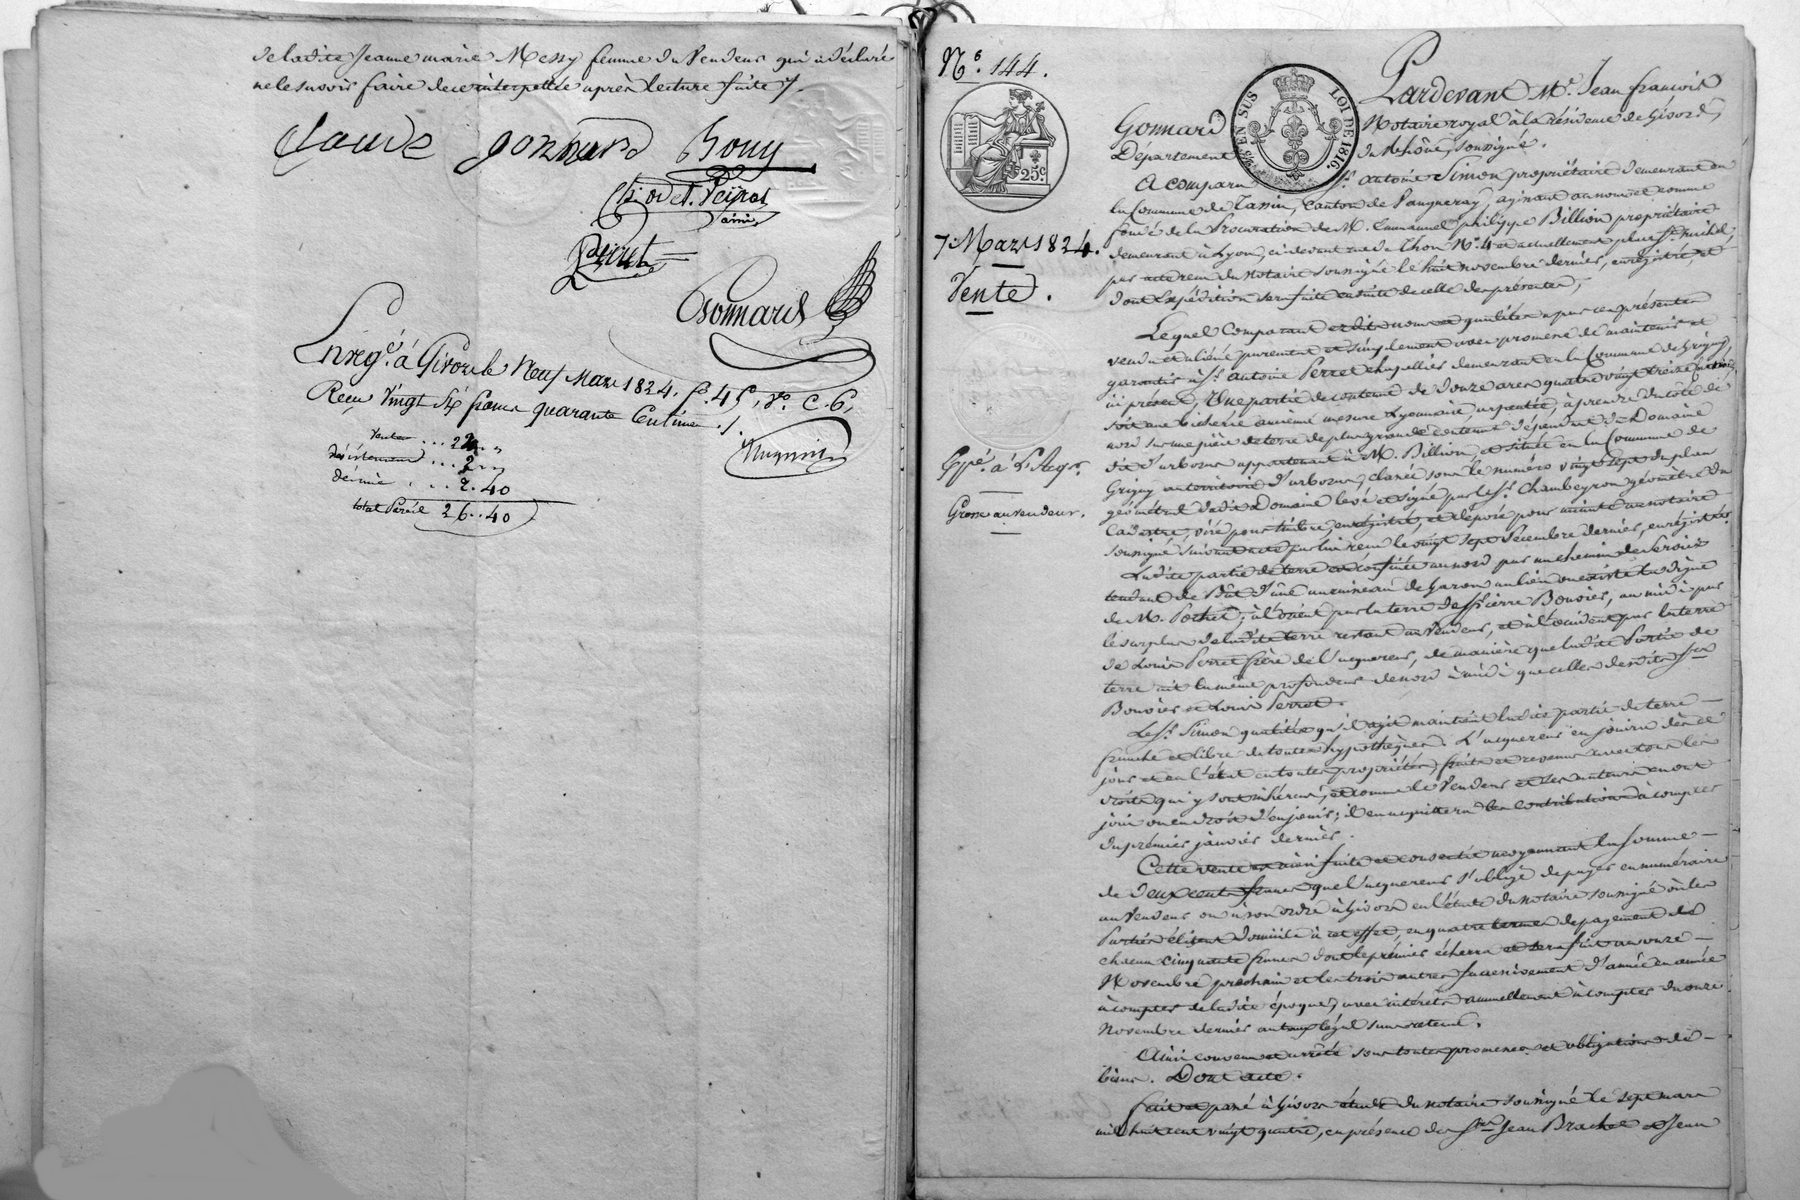 de ladite Jeanne marie Messy femme du Vendeur qui a déclaré
ne le savoir faire de ce interpellée après lecture faite /.
Claude Jonnard Bouy
Peyrat
ainé
Gonnard
Enregé. à Givors le Neuf Mars 1824, fo. 45, Vo. C. 6,
Reçu Vingt Six francs quarante Centimes ./.
Vente ... 22 „ „
désistement ... 2 „ „
décime ... 2. 40
total Pareil 26..40
No. 144.
25c.
7. Mars 1824.
Vente.
Expé. à l'Acqr.
Grosse au vendeur.
EN SUS LOI DE 1816.
Pardevant Me. Jean françois
Gonnard Notaire royal à la résidence de Givors,
Département du Rhône, soussigné.
A comparu Sr. antoine Simon propriétaire demeurant en
la Commune de Tassin, Canton de Vaugneray, agissant au nom et comme
fondé de la Procuration de M. Emmanuel philippe Billion propriétaire
demeurant à Lyon, ci-devant rue du Phon No. 4 et actuellement place St. Michel
par acte reçu du notaire soussigné le huit novembre dernier, enregistré, et
dont l'expédition sera faite ensuite de celle des présentes,
Lequel Comparant esdits noms et qualités a par ces présentes
vendu et aliéné purement et simplement avec promesse de maintenir et
garantir à Sr. antoine Perret chapellier demeurant en la Commune de Grigny,
ici présent, Une partie de contenue de douze ares quatre vingt treize centiares,
soit une bicherie ancienne mesure Lyonnaise, arpentée, à prendre du côté de
nord sur une pièce de terre de plus grande contenue dépendant du Domaine
dit d'arboras appartenant à M. Billion, et située en la Commune de
Grigny au territoire d'arboras, classée sous le numéro vingt sept du plan
géométral dudit Domaine levé et signé par le Sr. Chambeyron géomètre du
Cadastre, visé pour timbre, enregistré, et déposé pour minute au notaire
soussigné suivant acte par lui reçu le vingt sept Décembre dernier, enregistré.
Ladite partie de terre est confinée au nord par un chemin de service
tendant de Bût d'âne au ruisseau de Garon au lieu où existe la digue
de M. Pochet, à l'orient par la terre de Sr. pierre Bouvier, au midi par
le surplus de ladite terre restant au Vendeur, et à l'occident par la terre
de Louis Perret frère de l'acquéreur, de manière que ladite Partie de
terre ait la même profondeur de nord à midi que celles desdits Srs
Bouvier et Louis Perret.
Le Sr. Simon qualité qu'il agit maintient ladite partie de terre
franche et libre de toutes hypothèques. L'acquéreur en jouira dès ce
jour et en l'état en toutes propriétés, fruits et revenus avec tous les
droits qui y sont inhérens, et comme le Vendeur et ses auteurs en ont
joui ou eu droit d'en jouir; il en acquittera les contributions à compter
du premier janvier dernier.
Cette vente est ainsi faite et consentie moyennant la somme
de deux cents francs que l'acquéreur s'oblige de payer en numéraire
au Vendeur ou à son ordre à Givors en l'étude du notaire soussigné où les
Parties élisent domicile à cet effet, en quatre termes de payement de
chacun cinquante francs dont le premier écherra et sera fait au onze
Novembre prochain et les trois autres successivement d'année en année
à compter de ladite époque, avec intérêts annuellement à compter du onze
novembre dernier au taux légal sans retenue.
Ainsi convenu et arrêté sous toutes promesses et obligations de
biens. Dont acte.
fait et passé à Givors étude du notaire soussigné le sept mars
mil huit cent vingt quatre, en présence de Srs Jean Brachet et Jean